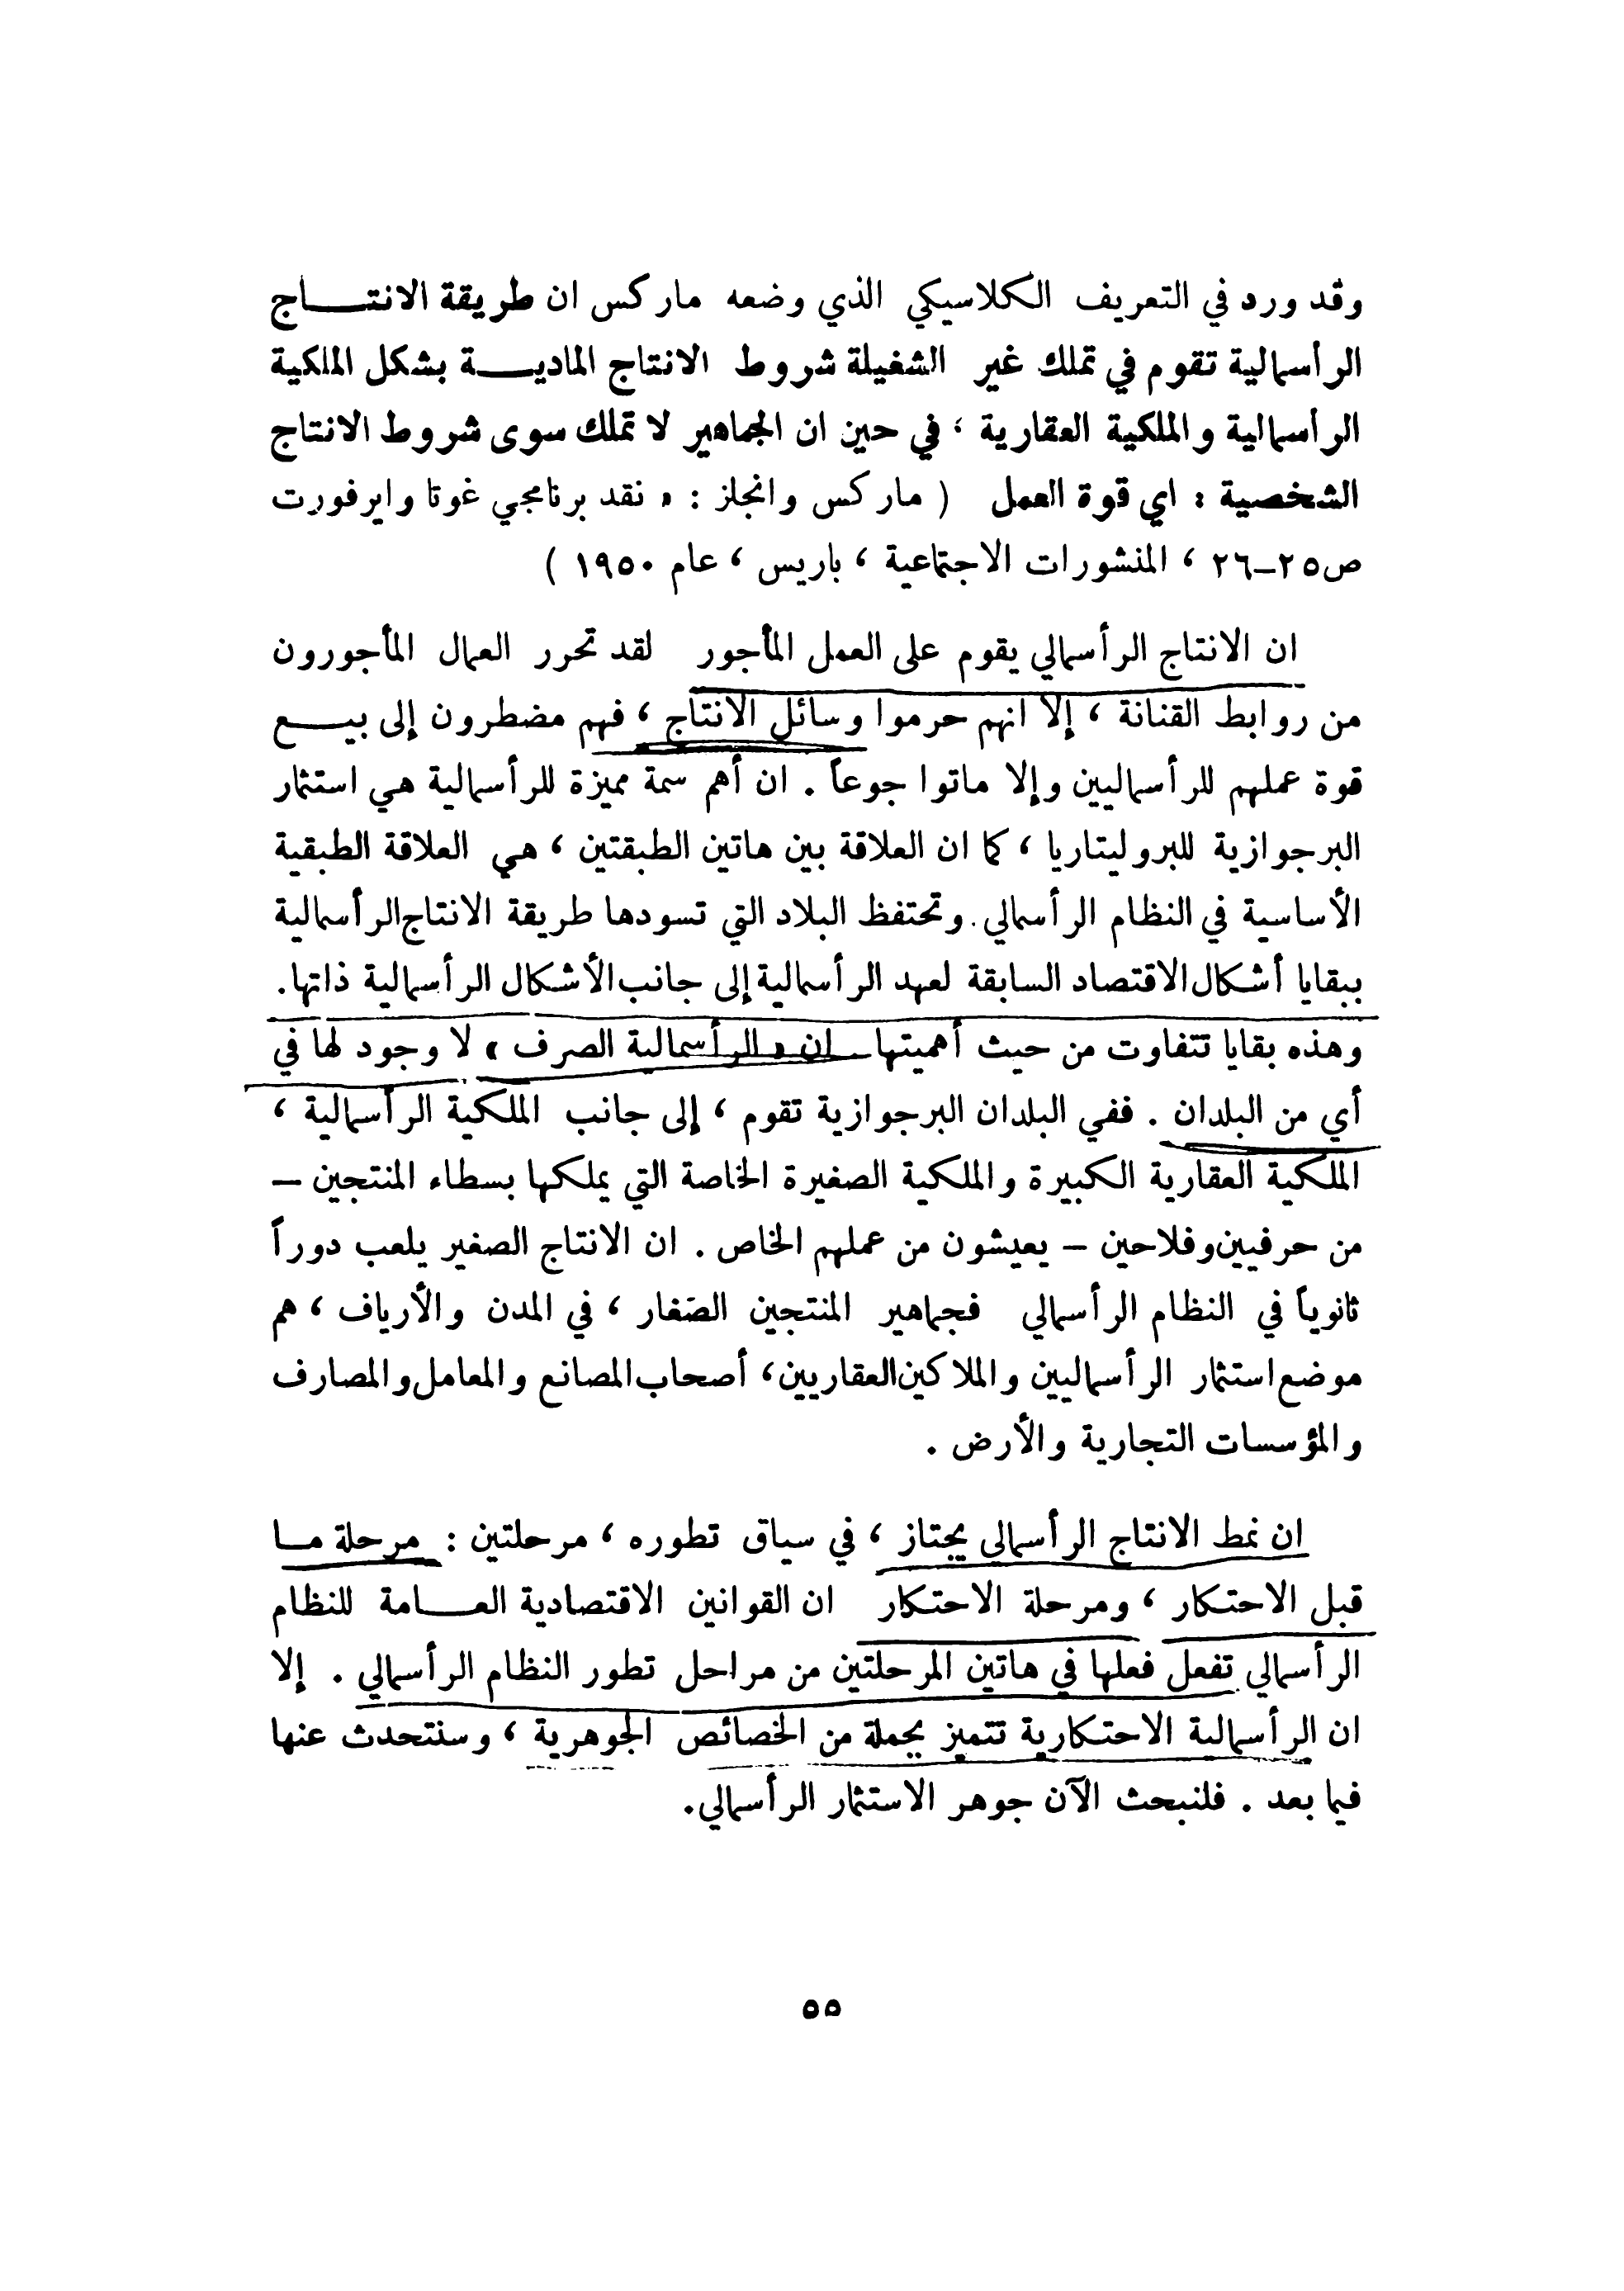 وقد ورد في التعريف الكلاسيكي الذي وضعه ماركس ان طريقة الانتـــاج
الرأسمالية تقوم في تملك غير الشغيلة شروط الانتاج الماديـــة بشكل الملكية
الرأسمالية والملكية العقارية ، في حين ان الجماهير لا تملك سوى شروط الانتاج
الشخصية : اي قوة العمل ( ماركس وانجلز : « نقد برنامجي غوتا وايرفورت
ص٢٥–٢٦ ، المنشورات الاجتماعية ، باريس ، عام ١٩٥٠ )
ان الانتاج الرأسمالي يقوم على العمل المأجور لقد تحرر العمال المأجورون
من روابط القنانة ، إلا انهم حرموا وسائل الانتاج ، فهم مضطرون إلى بيـــع
قوة عملهم للرأسماليين وإلا ماتوا جوعاً . ان أهم سمة مميزة للرأسمالية هي استثمار
البرجوازية للبروليتاريا ، كما ان العلاقة بين هاتين الطبقتين ، هي العلاقة الطبقية
الأساسية في النظام الرأسمالي . وتحتفظ البلاد التي تسودها طريقة الانتاج الرأسمالية
ببقايا أشكال الاقتصاد السابقة لعهد الرأسمالية إلى جانب الأشكال الرأسمالية ذاتها.
وهذه بقايا تتفاوت من حيث أهميتها . ان « الرأسمالية الصرف » لا وجود لها في
أي من البلدان . ففي البلدان البرجوازية تقوم ، إلى جانب الملكية الرأسمالية ،
الملكية العقارية الكبيرة والملكية الصغيرة الخاصة التي يملكها بسطاء المنتجين –
من حرفيين وفلاحين – يعيشون من عملهم الخاص . ان الانتاج الصغير يلعب دوراً
ثانوياً في النظام الرأسمالي فجماهير المنتجين الصغار ، في المدن والأرياف ، هم
موضع استثمار الرأسماليين والملاكين العقاريين، أصحاب المصانع والمعامل والمصارف
والمؤسسات التجارية والأرض .
ان نمط الانتاج الرأسمالي يجتاز ، في سياق تطوره ، مرحلتين : مرحلة مــا
قبل الاحتكار ، ومرحلة الاحتكار ان القوانين الاقتصادية العـــامة للنظام
الرأسمالي تفعل فعلها في هاتين المرحلتين من مراحل تطور النظام الرأسمالي . إلا
ان الرأسمالية الاحتكارية تتميز بجملة من الخصائص الجوهرية ، وسنتحدث عنها
فيما بعد . فلنبحث الآن جوهر الاستثمار الرأسمالي.
٥٥